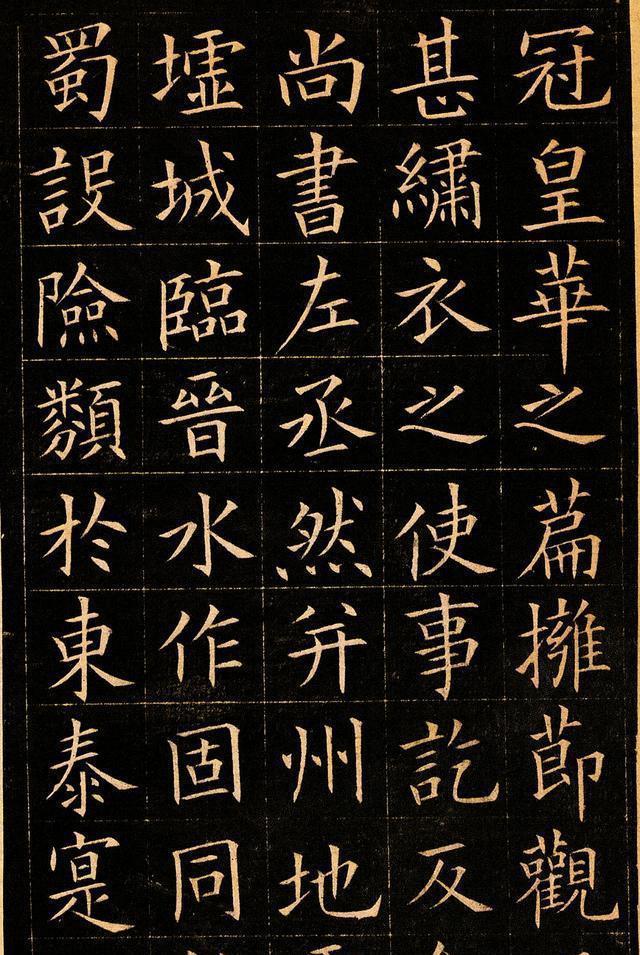 冠皇華之萹擁莭觀
甚繡衣之使事訖反
尚書左丞然并州地
墟城臨晉水作固同
蜀設險類於東泰寔